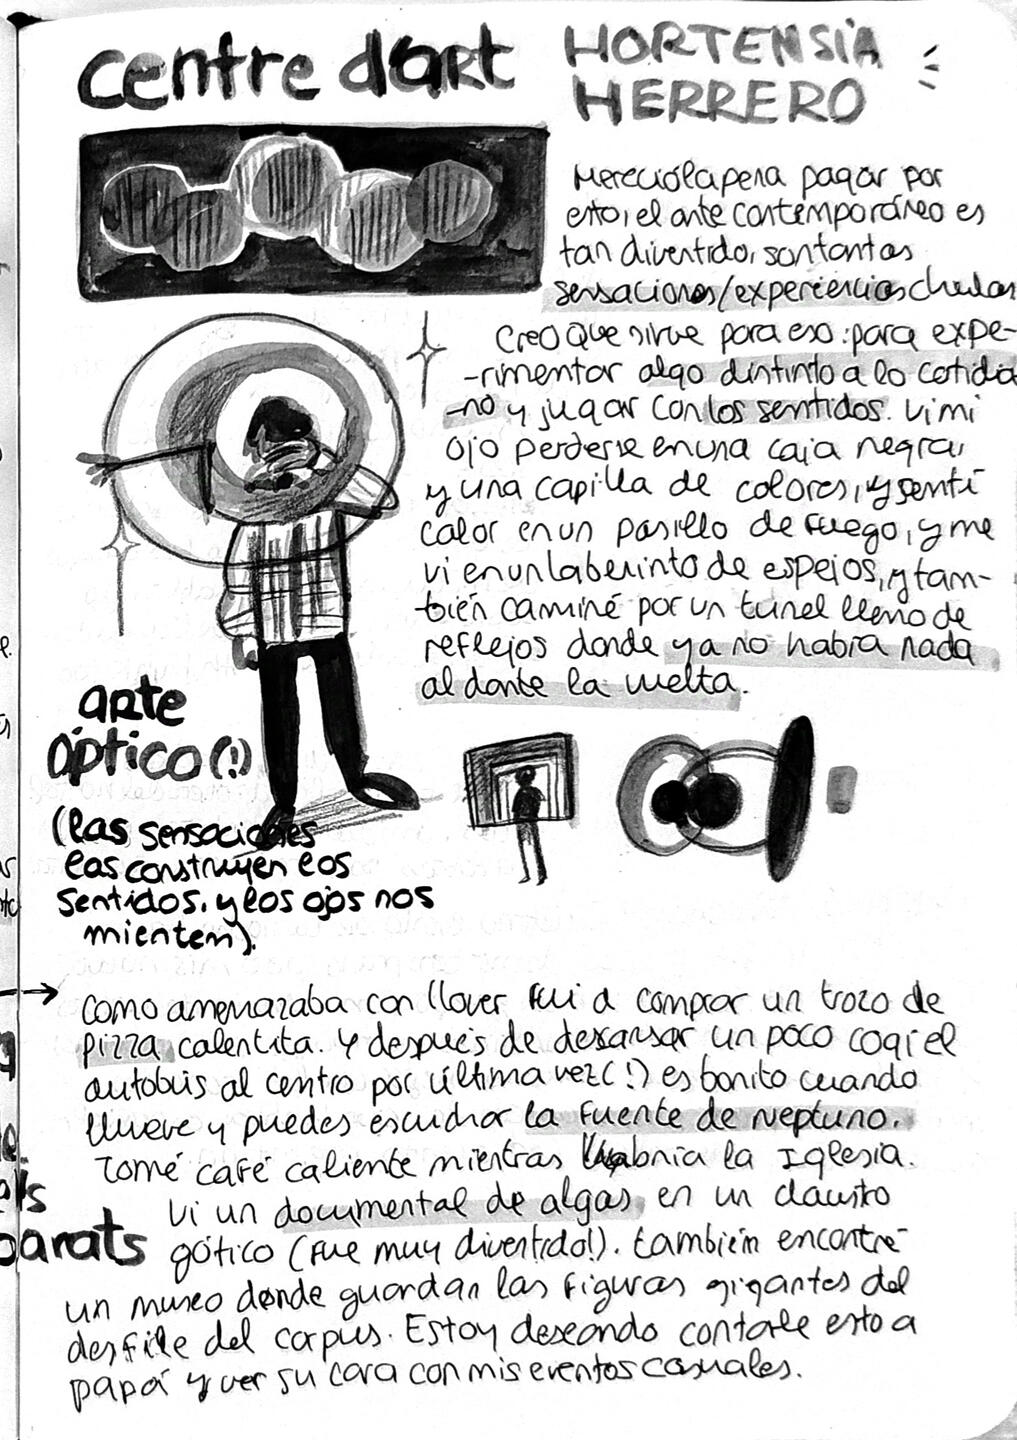 centre d'art
HORTENSIA
HERRERO
Mereció la pena pagar por
esto, el arte contemporáneo es
tan divertido, son tantas
sensaciones/experiencias chulas
Creo que sirve para eso: para expe-
-rimentar algo distinto a lo cotidia
-no y jugar con los sentidos. Vi mi
ojo perderse en una caja negra,
y una capilla de colores, y sentí
calor en un pasillo de fuego, y me
vi en un laberinto de espejos, y tam-
bién caminé por un tunel lleno de
reflejos donde ya no había nada
al darte la vuelta.
arte
óptico (!)
(las sensaciones
las construyen los
sentidos, y los ojos nos
mienten).
Como amenazaba con llover fui a comprar un trozo de
pizza calentita. Y después de descansar un poco cogí el
autobús al centro por última vez (!) es bonito cuando
llueve y puedes escuchar la fuente de neptuno.
Tomé café caliente mientras abría la Iglesia.
Vi un documental de algas en un claustro
gótico (fue muy divertido!). también encontré
un museo donde guardan las figuras gigantes del
desfile del corpus. Estoy deseando contarle esto a
papá y ver su cara con mis eventos casuales.
als
parats